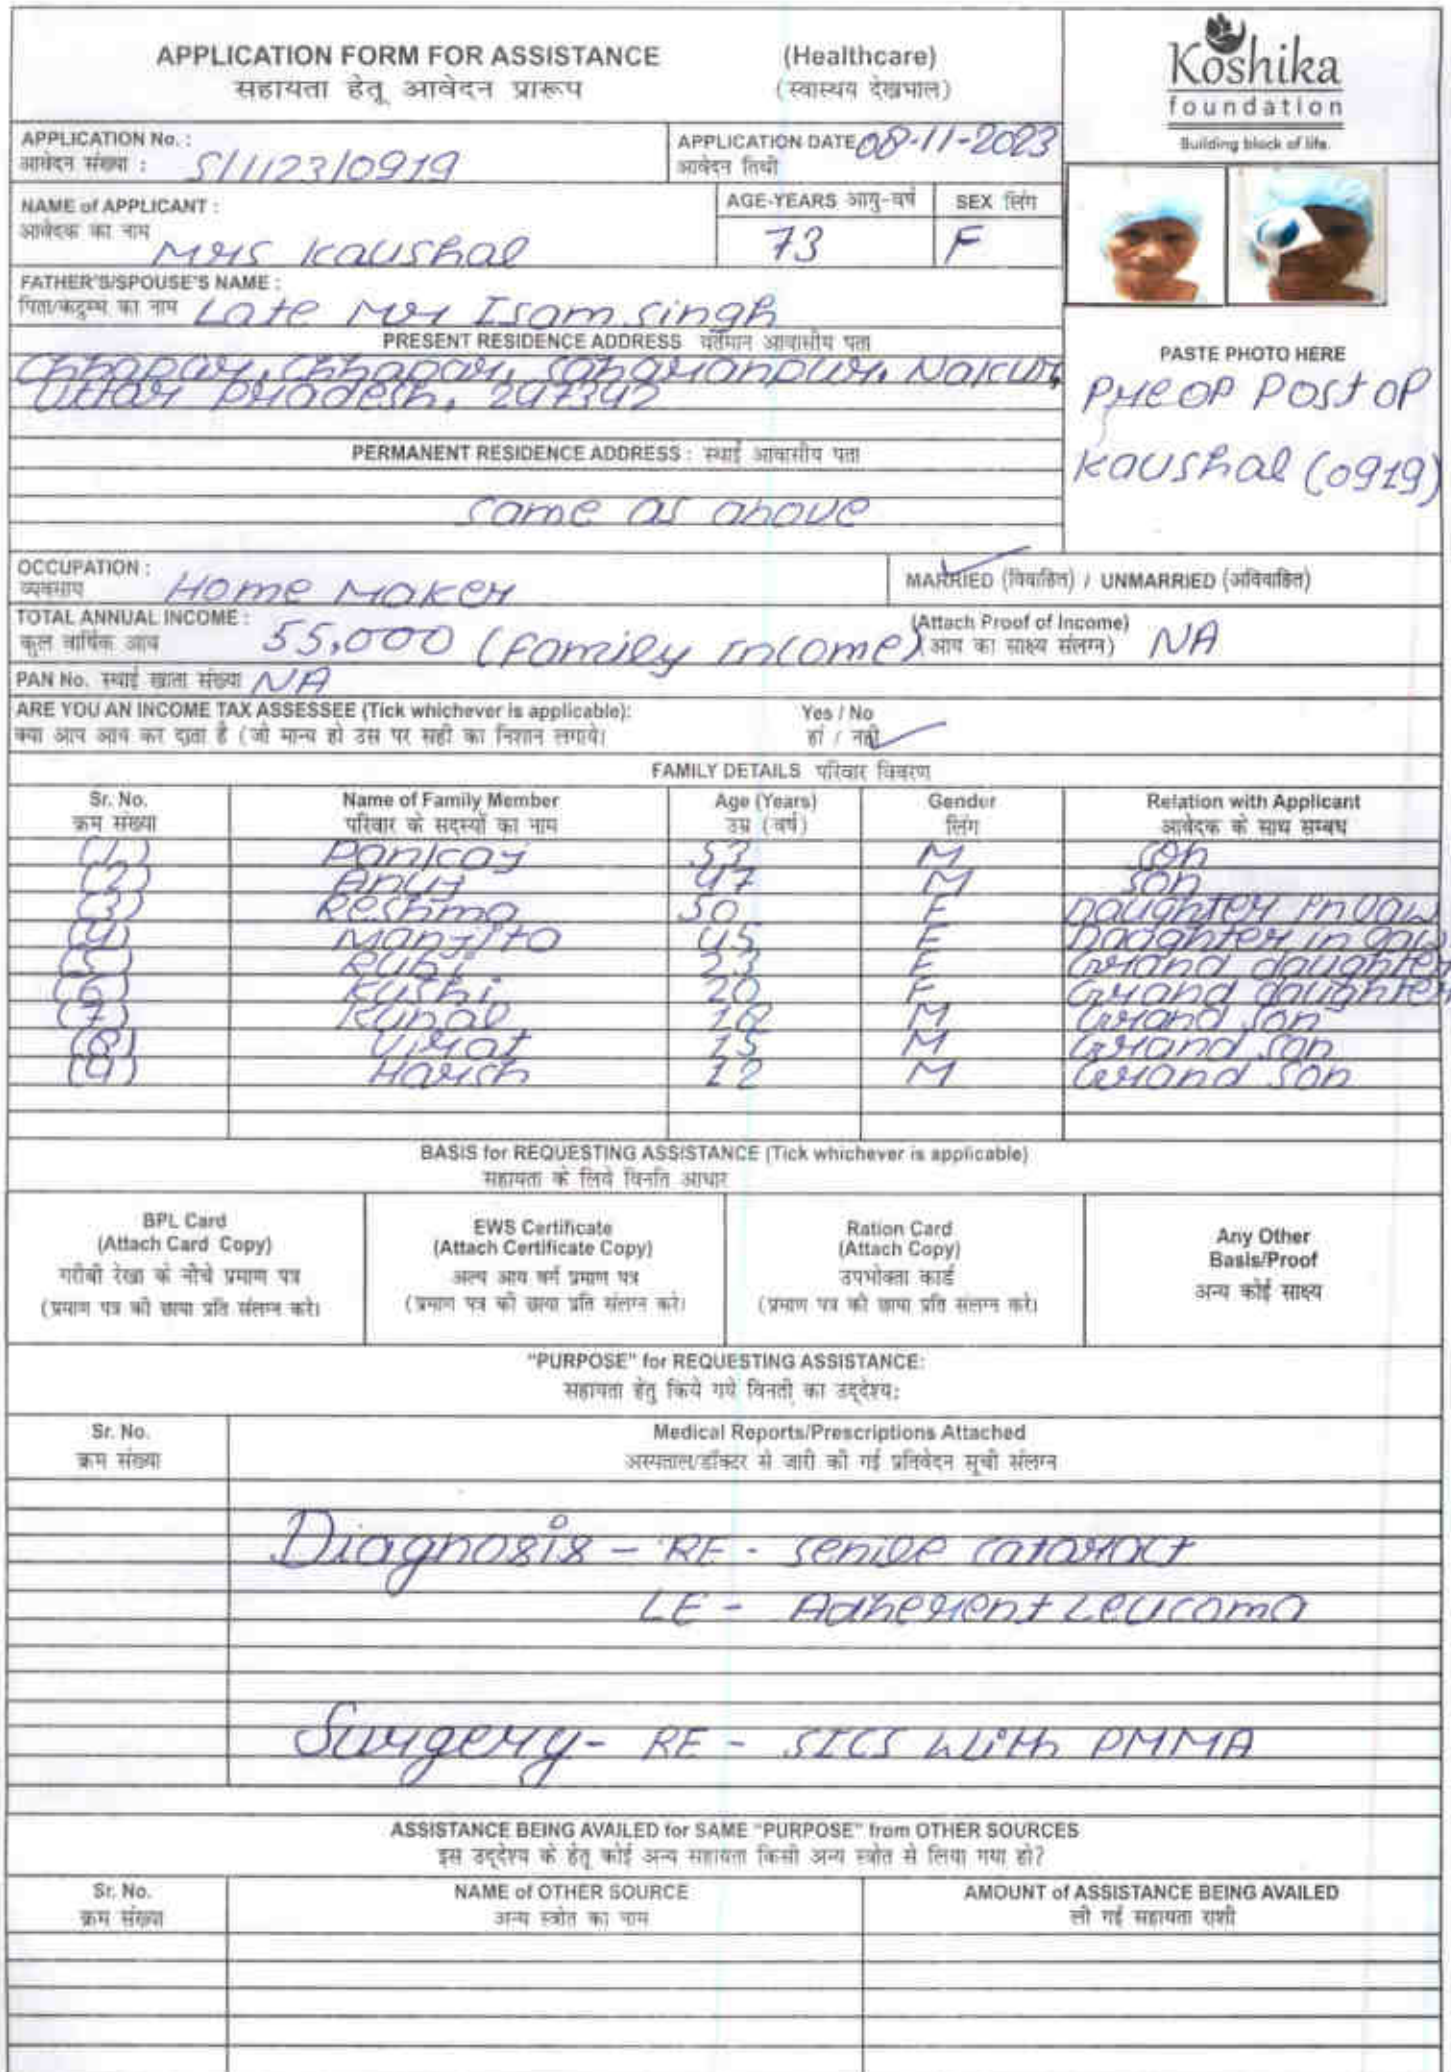 APPLICATION FORM FOR ASSISTANCE (Healthcare)
सहायता हेतू आवेदन प्रारूप (स्वास्थय देखभाल)
Koshika
foundation
Building block of life.
APPLICATION No. : S/1123/0919
आवेदन संख्या :
APPLICATION DATE 08-11-2023
आवेदन तिथी
NAME of APPLICANT : Mrs Kaushal
आवेदक का नाम
AGE-YEARS आयु-वर्ष 73
SEX लिंग F
FATHER'S/SPOUSE'S NAME :
पिता/कटुम्ब का नाम Late Mr Isam singh
PRESENT RESIDENCE ADDRESS वर्तमान आवासीय पता
Chhapar, Chhapar, Saharanpur, Nakur,
Uttar Pradesh, 247342
PASTE PHOTO HERE
Pre OP Post OP
Kaushal (0919)
PERMANENT RESIDENCE ADDRESS : स्थाई आवासीय पता
same as above
OCCUPATION : Home Maker
व्यवसाय
MARRIED (विवाहित) / UNMARRIED (अविवाहित)
TOTAL ANNUAL INCOME : 55,000 (family income)
कुल वार्षिक आय
(Attach Proof of Income) NA
(आय का साक्ष्य संलग्न)
PAN No. स्थाई खाता संख्या NA
ARE YOU AN INCOME TAX ASSESSEE (Tick whichever is applicable): Yes / No
क्या आप आय कर दाता है (जो मान्य हो उस पर सही का निशान लगाये। हां / नही
FAMILY DETAILS परिवार विवरण
Sr. No. Name of Family Member Age (Years) Gender Relation with Applicant
क्रम संख्या परिवार के सदस्यों का नाम उम्र (वर्ष) लिंग आवेदक के साथ सम्बध
(1) Pankaj 53 M son
(2) Anuj 47 M son
(3) Reshma 50 F Daughter in law
(4) Manjita 45 F Daughter in law
(5) Rubi 23 F Grand daughter
(6) Kushi 20 F Grand daughter
(7) Kunal 18 M Grand son
(8) Virat 15 M Grand son
(9) Harsh 12 M Grand son
BASIS for REQUESTING ASSISTANCE (Tick whichever is applicable)
सहायता के लिये विनति आधार
BPL Card
(Attach Card Copy)
गरीबी रेखा के नीचे प्रमाण पत्र
(प्रमाण पत्र की छाया प्रति संलग्न करे।
EWS Certificate
(Attach Certificate Copy)
अल्प आय वर्ग प्रमाण पत्र
(प्रमाण पत्र की छाया प्रति संलग्न करे।
Ration Card
(Attach Copy)
उपभोक्ता कार्ड
(प्रमाण पत्र की छाया प्रति संलग्न करे।
Any Other
Basis/Proof
अन्य कोई साक्ष्य
"PURPOSE" for REQUESTING ASSISTANCE:
सहायता हेतु किये गये विनती का उद्देश्य:
Sr. No. Medical Reports/Prescriptions Attached
क्रम संख्या अस्पताल/डॉक्टर से जारी की गई प्रतिवेदन सूची संलग्न
Diagnosis - RE - senile cataract
LE - Adherent Leucoma
Surgery - RE - SICS with PMMA
ASSISTANCE BEING AVAILED for SAME "PURPOSE" from OTHER SOURCES
इस उद्देश्य के हेतू कोई अन्य सहायता किसी अन्य स्त्रोत से लिया गया हो?
Sr. No. NAME of OTHER SOURCE AMOUNT of ASSISTANCE BEING AVAILED
क्रम संख्या अन्य स्त्रोत का नाम ली गई सहायता राशी